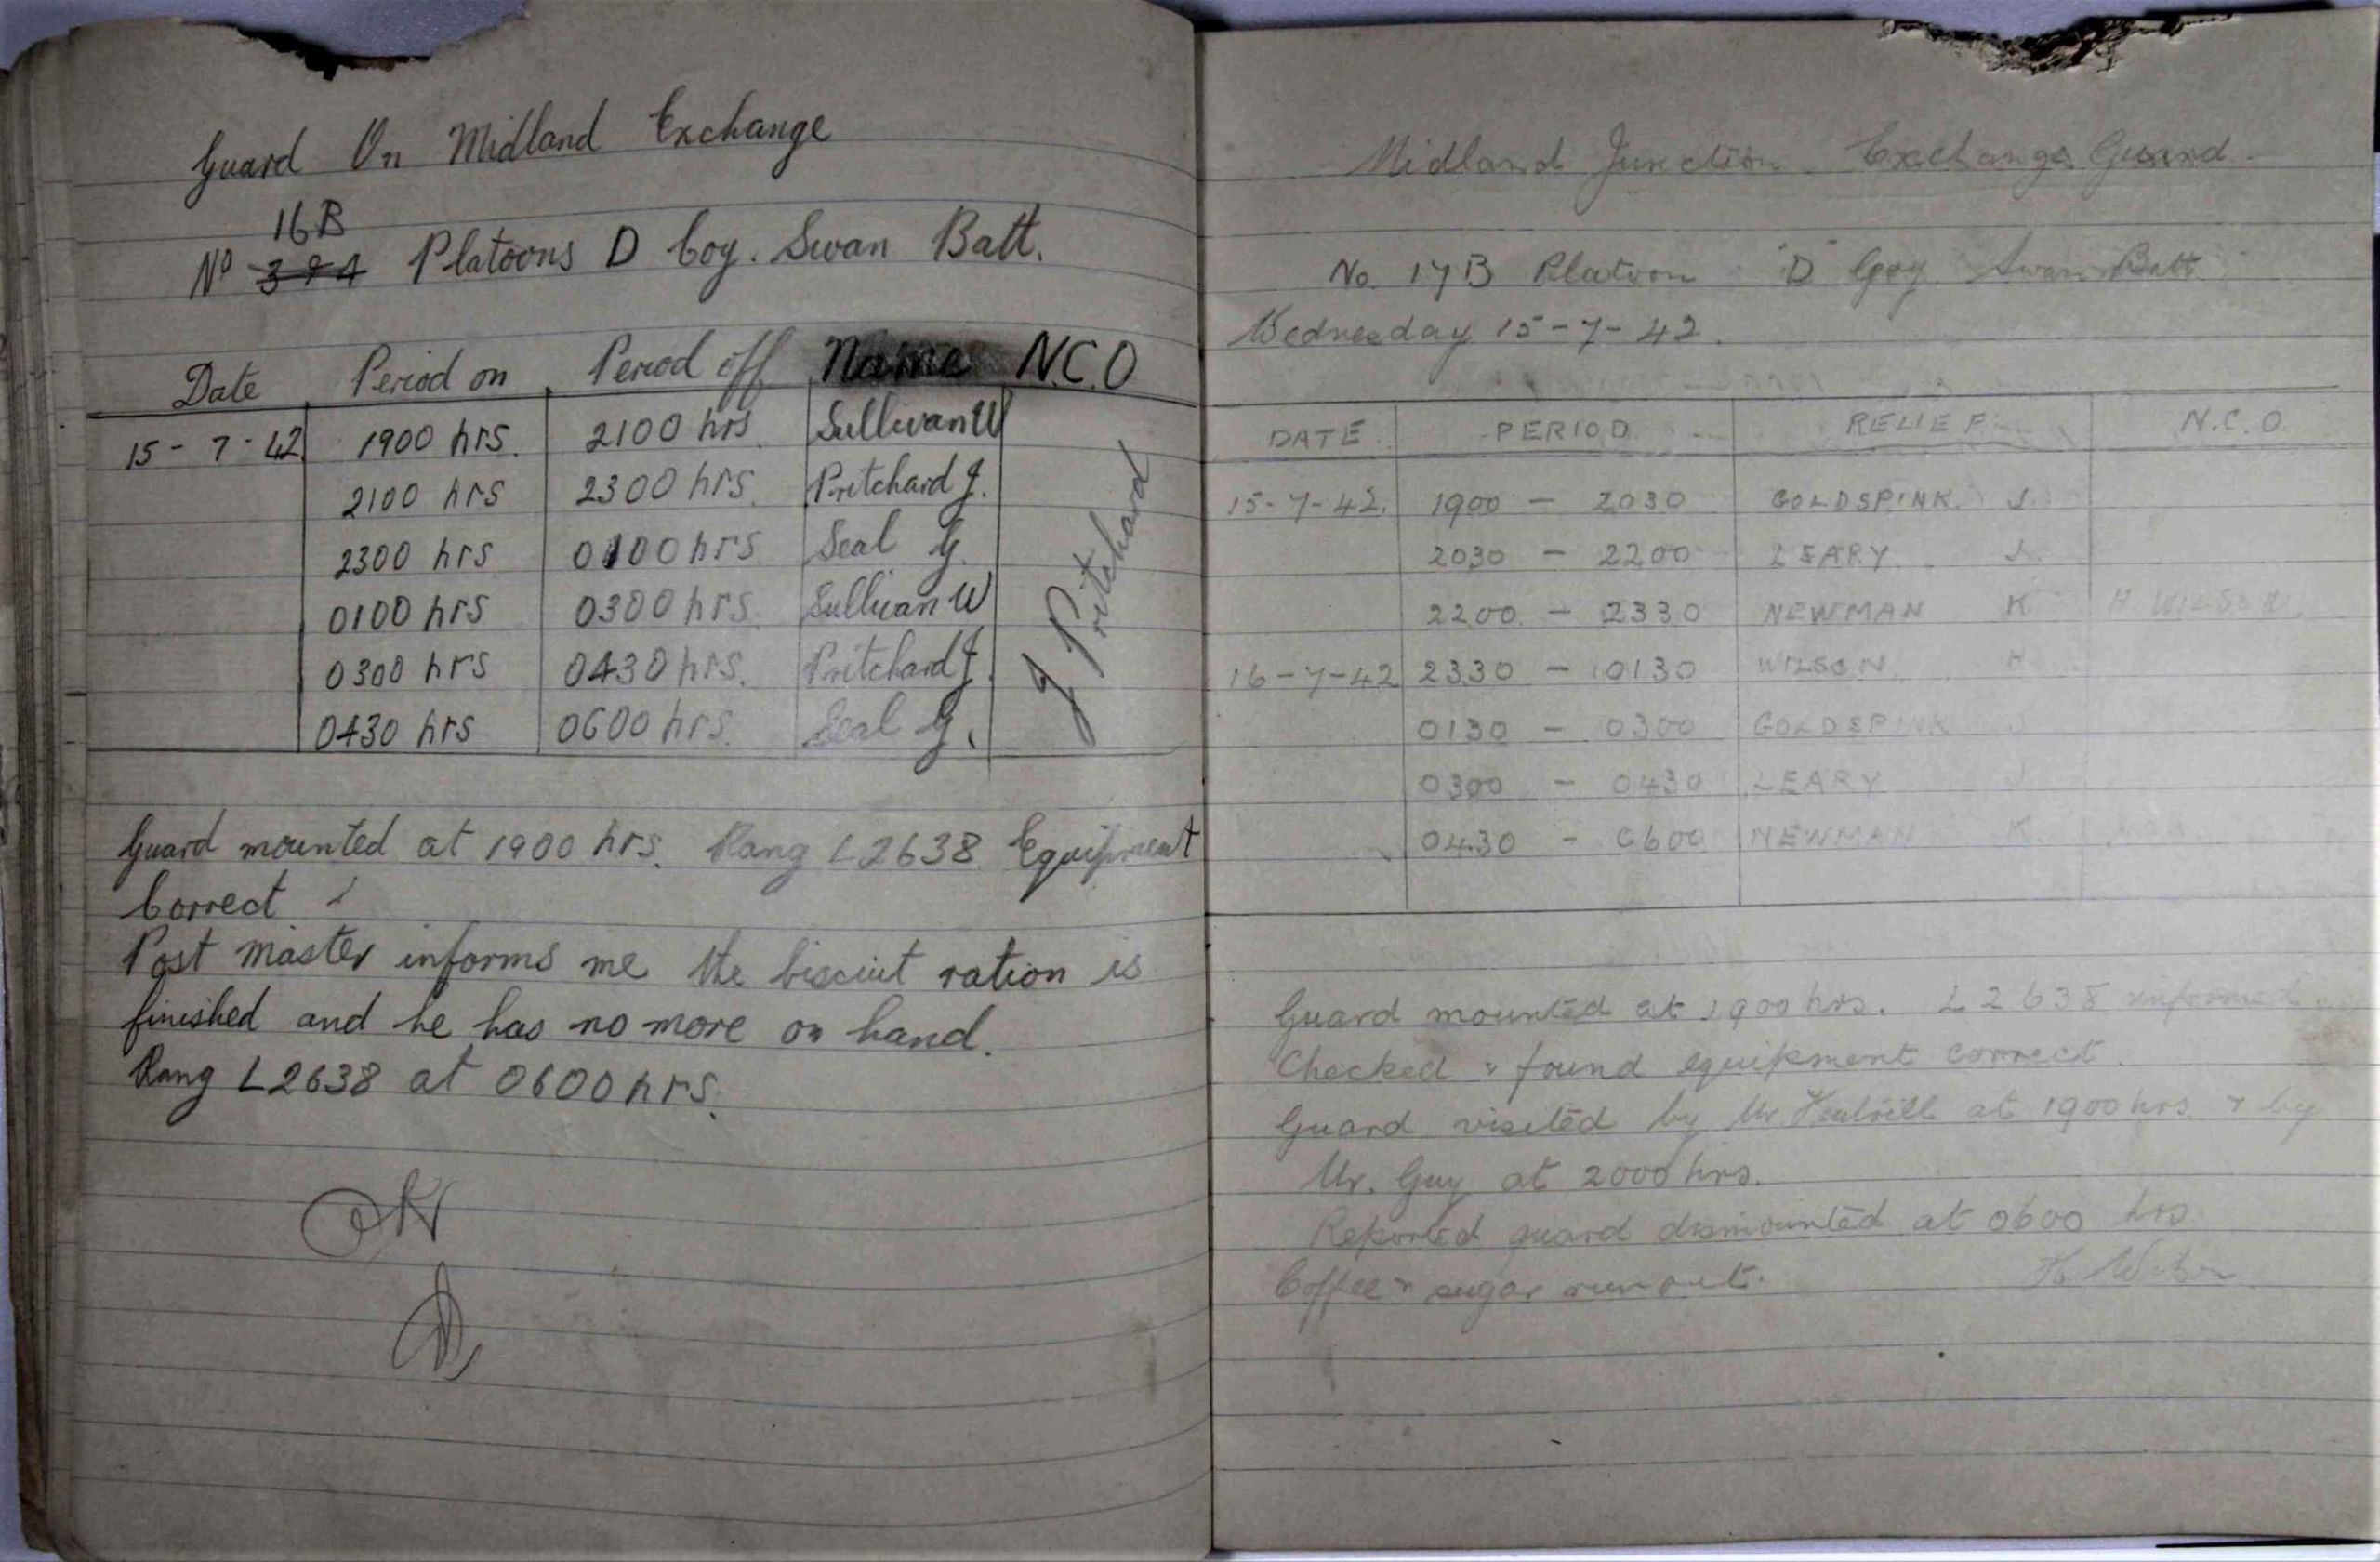 Guard On Midland Exchange
16B
No 3 & 4 Platoons D Coy. Swan Batt.
Date Period on Period off Name N.C.O
15-7-42 1900 hrs. 2100 hrs Sullivan W
2100 hrs 2300 hrs. Pritchard J.
2300 hrs 0100 hrs Seal G.
0100 hrs 0300 hrs. Sullivan W
0300 hrs 0430 hrs. Pritchard J.
0430 hrs 0600 hrs. Seal G.
J Pritchard
Guard mounted at 1900 hrs. Rang L2638 Equipment
Correct
Post master informs me the biscuit ration is
finished and he has no more on hand.
Rang L2638 at 0600 hrs.
Midland Junction Exchange Guard.
No. 17B Platoon "D" Coy Swan Batt
Wednesday 15-7-42.
DATE PERIOD RELIEF N.C.O.
15-7-42. 1900 - 2030 GOLDSPINK J.
2030 - 2200 LEARY J.
2200 - 2330 NEWMAN K H WILSON.
16-7-42 2330 - 0130 WILSON H
0130 - 0300 GOLDSPINK J
0300 - 0430 LEARY J
0430 - 0600 NEWMAN K.
Guard mounted at 1900 hrs. L2638 informed.
Checked & found equipment correct.
Guard visited by Mr. at 1900 hrs & by
Mr. Guy at 2000 hrs.
Reported guard dismounted at 0600 hrs.
Coffee & sugar run out. H Wilson